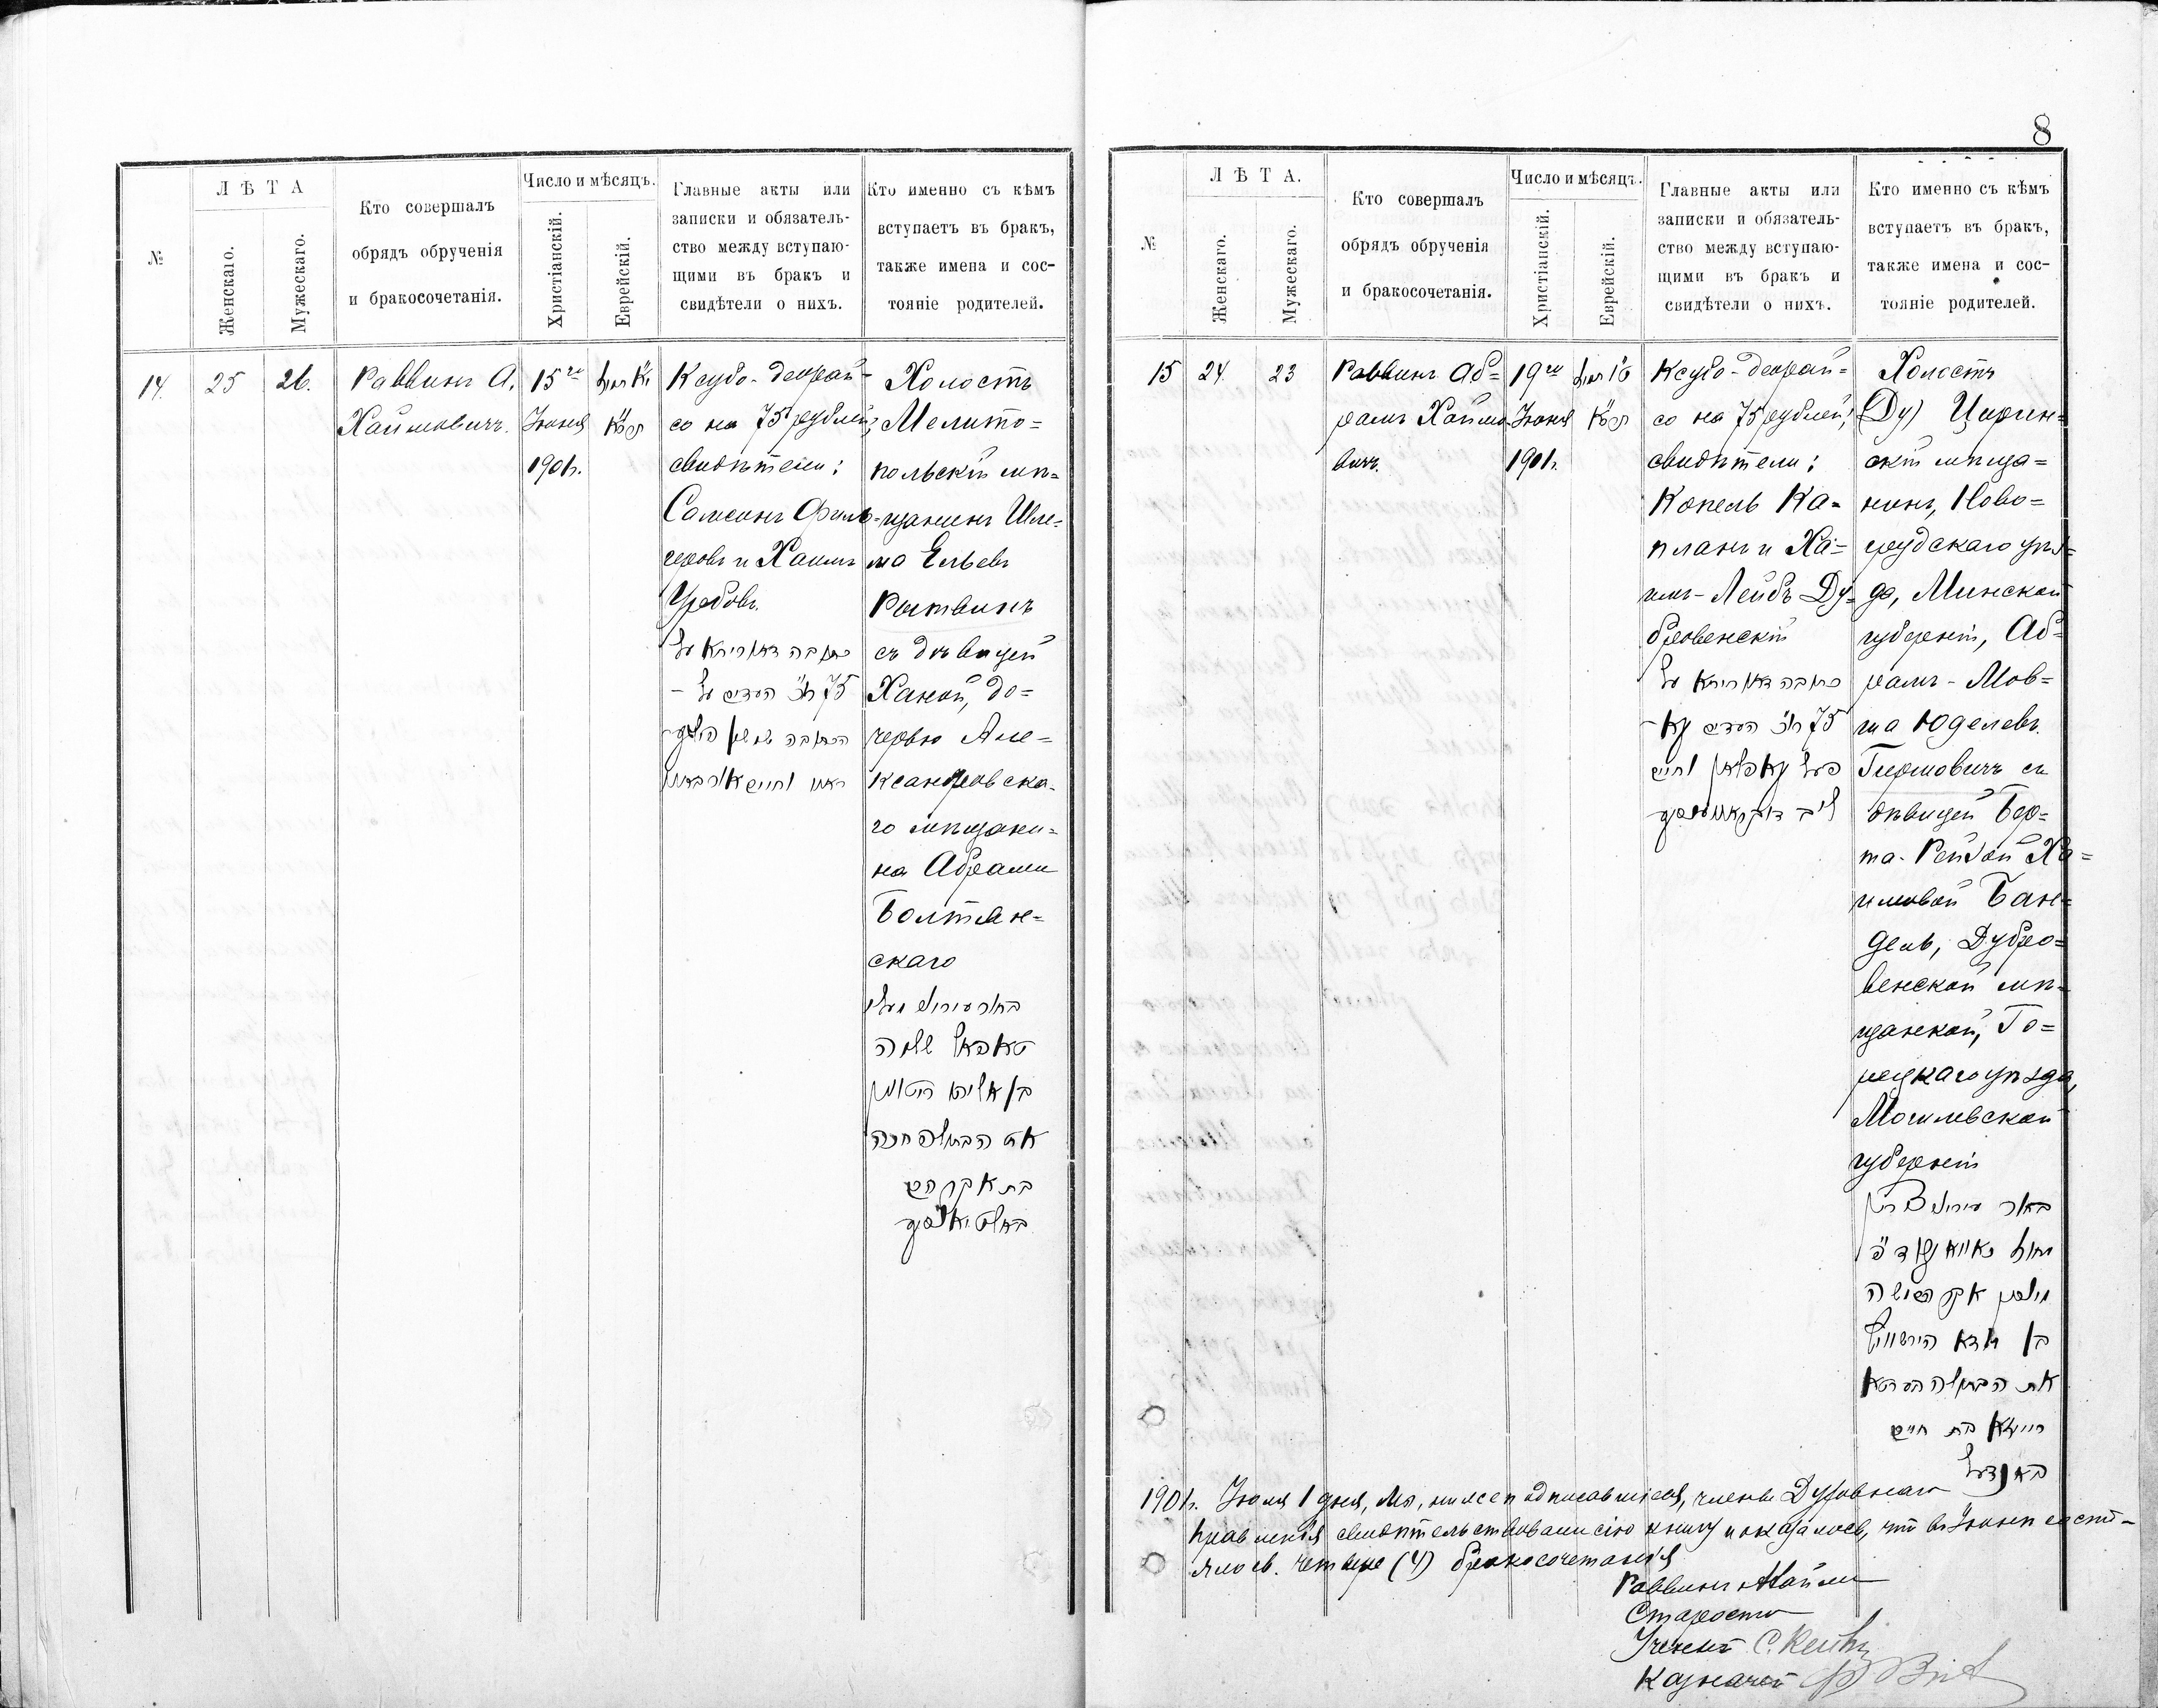 8
№
Л Ѣ Т А
Женскаго.
Мужескаго.
Кто совершалъ
обрядъ обрученія
и бракосочетанія.
Число и мѣсяцъ.
Христіанскій.
Еврейскій.
Главные акты или
записки и обязатель-
ство между вступаю-
щими въ бракъ и
свидѣтели о нихъ.
Кто именно съ кѣмъ
вступаетъ въ бракъ,
также имена и сос-
тояніе родителей.
14.
25
26.
Раввинъ А.
Хаймовичъ.
15го
Іюня
1901г.
Ксубо-деорай-
со на 75 рублей;
свидѣтели:
Самсонъ Филь-
черовъ и Хаимъ
כתובה דאורייתא על
75 רו״כ העדים על
Холостъ
Мелито=
польскій мѣ=
щанинъ Шле=
ма Ельевъ
Рытвинъ
съ дѣвицей
Ханой, до=
черью Але=
ксандровска-
го мѣщани=
на Абрама
Болтян=
скаго
שלמה
בן אליהו
את הבתולה חנה
בת אברהם
№
Л Ѣ Т А.
Женскаго.
Мужескаго.
Кто совершалъ
обрядъ обрученія
и бракосочетанія.
Число и мѣсяцъ.
Христіанскій.
Еврейскій.
Главные акты или
записки и обязатель-
ство между вступаю-
щими въ бракъ и
свидѣтели о нихъ.
Кто именно съ кѣмъ
вступаетъ въ бракъ,
также имена и сос-
тояніе родителей.
15
24
23
Раввинъ Аб=
рамъ Хаймо-
вичъ.
19го
Іюня
1901г.
Ксубо-деорай=
со на 75 рублей;
свидѣтели:
Копель Ка=
планъ и Ха=
имъ-Лейбъ Ду=
бровенскій
כתובה דאורייתא על
75 רו״כ העדים
קאפלאן וחיים
ליב
Холостъ
(Ду) Цирин=
скій мѣща=
нинъ, Ново=
грудскаго уѣз=
да, Минской
губерніи, Аб=
рамъ-Мов=
ша Юделевъ
Гиршовичъ съ
дѣвицей Бер=
та-Рейзой Ха=
имовой Бан=
дель, Дубро=
венской мѣ=
щанкой, Го=
рецкаго уѣзда,
Могилевской
губерніи
אברהם משה
בן יודא הירשוויץ
את הבתולה בערטא
רייזא בת חיים
באנדעל
1901г. Іюля 1 дня, Мы, нижеподписавшіеся, члены Духовнаго
Правленія свидѣтельствовали сію книгу и оказалось, что въ Іюнѣ состо-
ялось четыре (4) бракосочетанія
Раввинъ
Староста
Ученый
Казначей